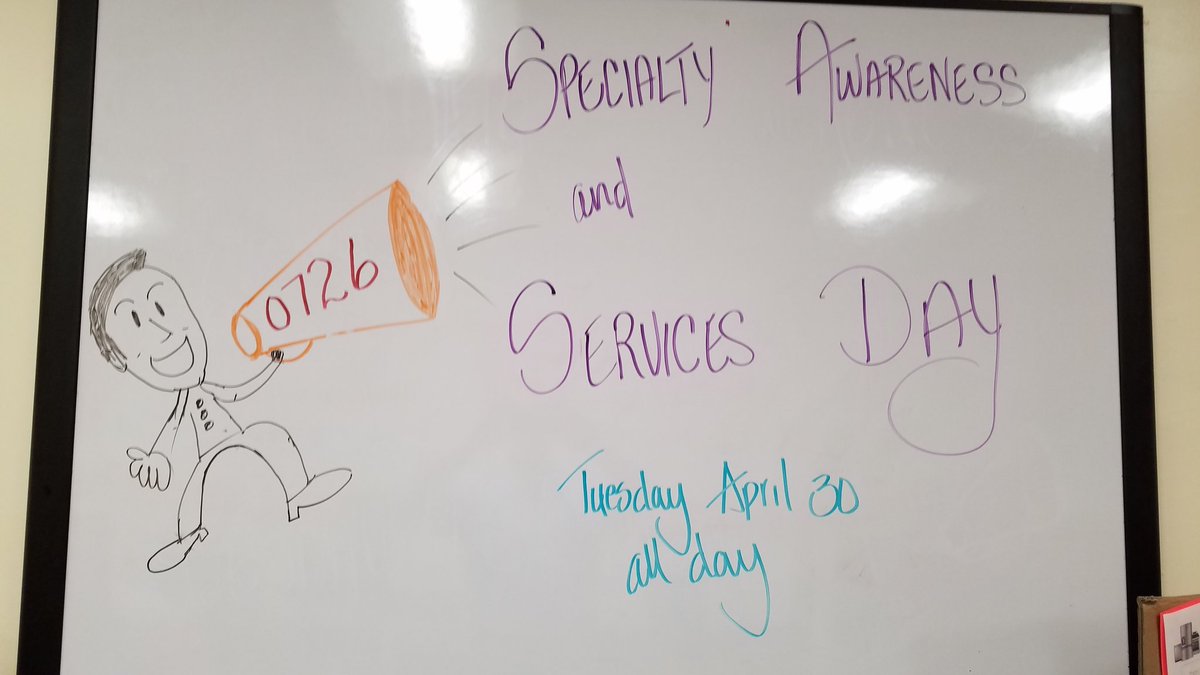 SPECIALTY AWARENESS
and
0726
SERVICES DAY
Tuesday April 30
all day